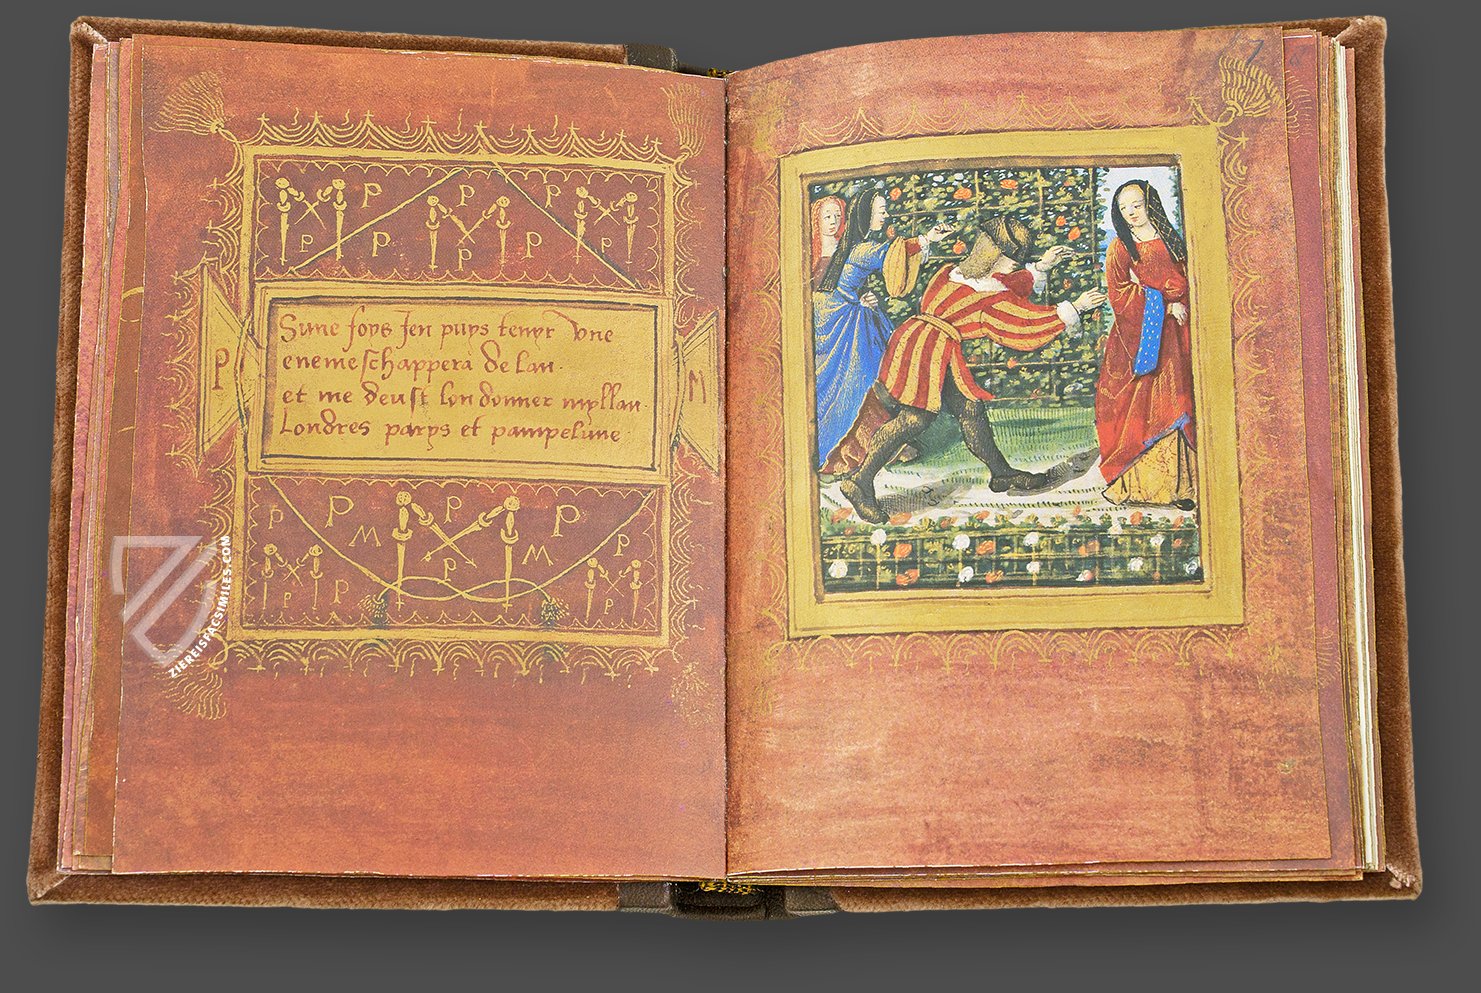 P P P
P P P P
Sune foys Jen puys tenyr Vne
eneme schappera de lan.
et me deust lon donner myllan.
Londres parys et pampelune
P M
P P P P
M M P
P P P P
ZIEREISFACSIMILES.COM